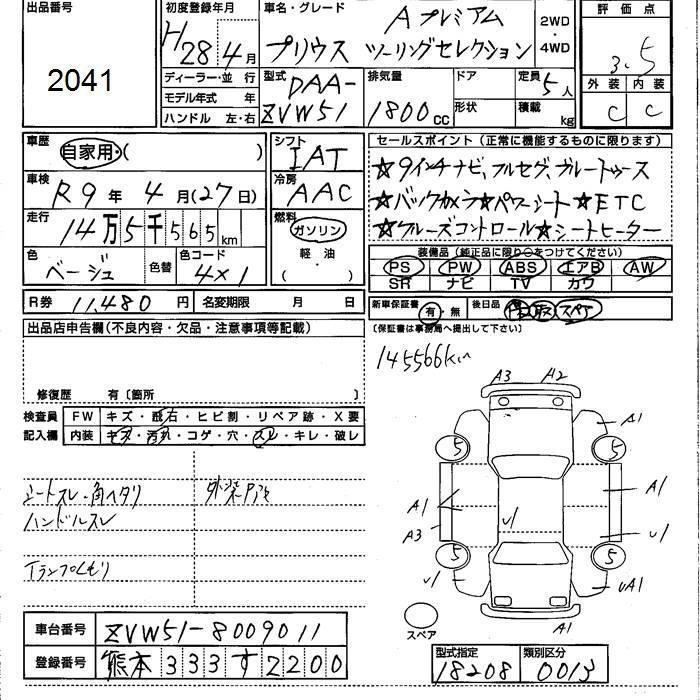 出品番号
2041
初度登録年月
H28年4月
車名・グレード
プリウス Aプレミアム ツーリングセレクション
2WD
・
4WD
評価点
3.5
外装 内装
C C
ディーラー・並行
モデル年式 年
ハンドル 左・右
型式
DAA-
ZVW51
排気量
1800cc
ドア
形状
定員
5人
積載
kg
車歴
自家用・( )
車検
R9年4月(27日)
走行
14万5千565km
色
ベージュ
色替
色コード
4X1
シフト
IAT
冷房
AAC
燃料
ガソリン
軽・油
( )
セールスポイント(正常に機能するものに限ります)
☆9インチナビ、フルセグ、ブルートゥース
☆バックカメラ☆パワーシート☆ETC
☆クルーズコントロール☆シートヒーター
装備品(純正品に限り○をつけてください)
PS PW ABS エアB AW
SR ナビ TV カワ
R券 11,480円 名変期限 月 日
新車保証書 有・無 後日品 取 スペア
(保証書は事務局へ提出して下さい)
出品店申告欄(不良内容・欠品・注意事項等記載)
修復歴 有〔箇所 〕
145566km
検査員 FW キズ・飛石・ヒビ割・リペア跡・X要
記入欄 内装 キズ・汚れ・コゲ・穴・スレ・キレ・破レ
シートスレ・角ヘタリ
ハンドルスレ
Tランプくもり
A3 A2
A1
5 5
A1 A1
A3 U1 U1
5 5
U1 UA1
A1
スペア
車台番号 ZVW51-8009011
登録番号 熊本333す2200
型式指定 類別区分
18208 0013